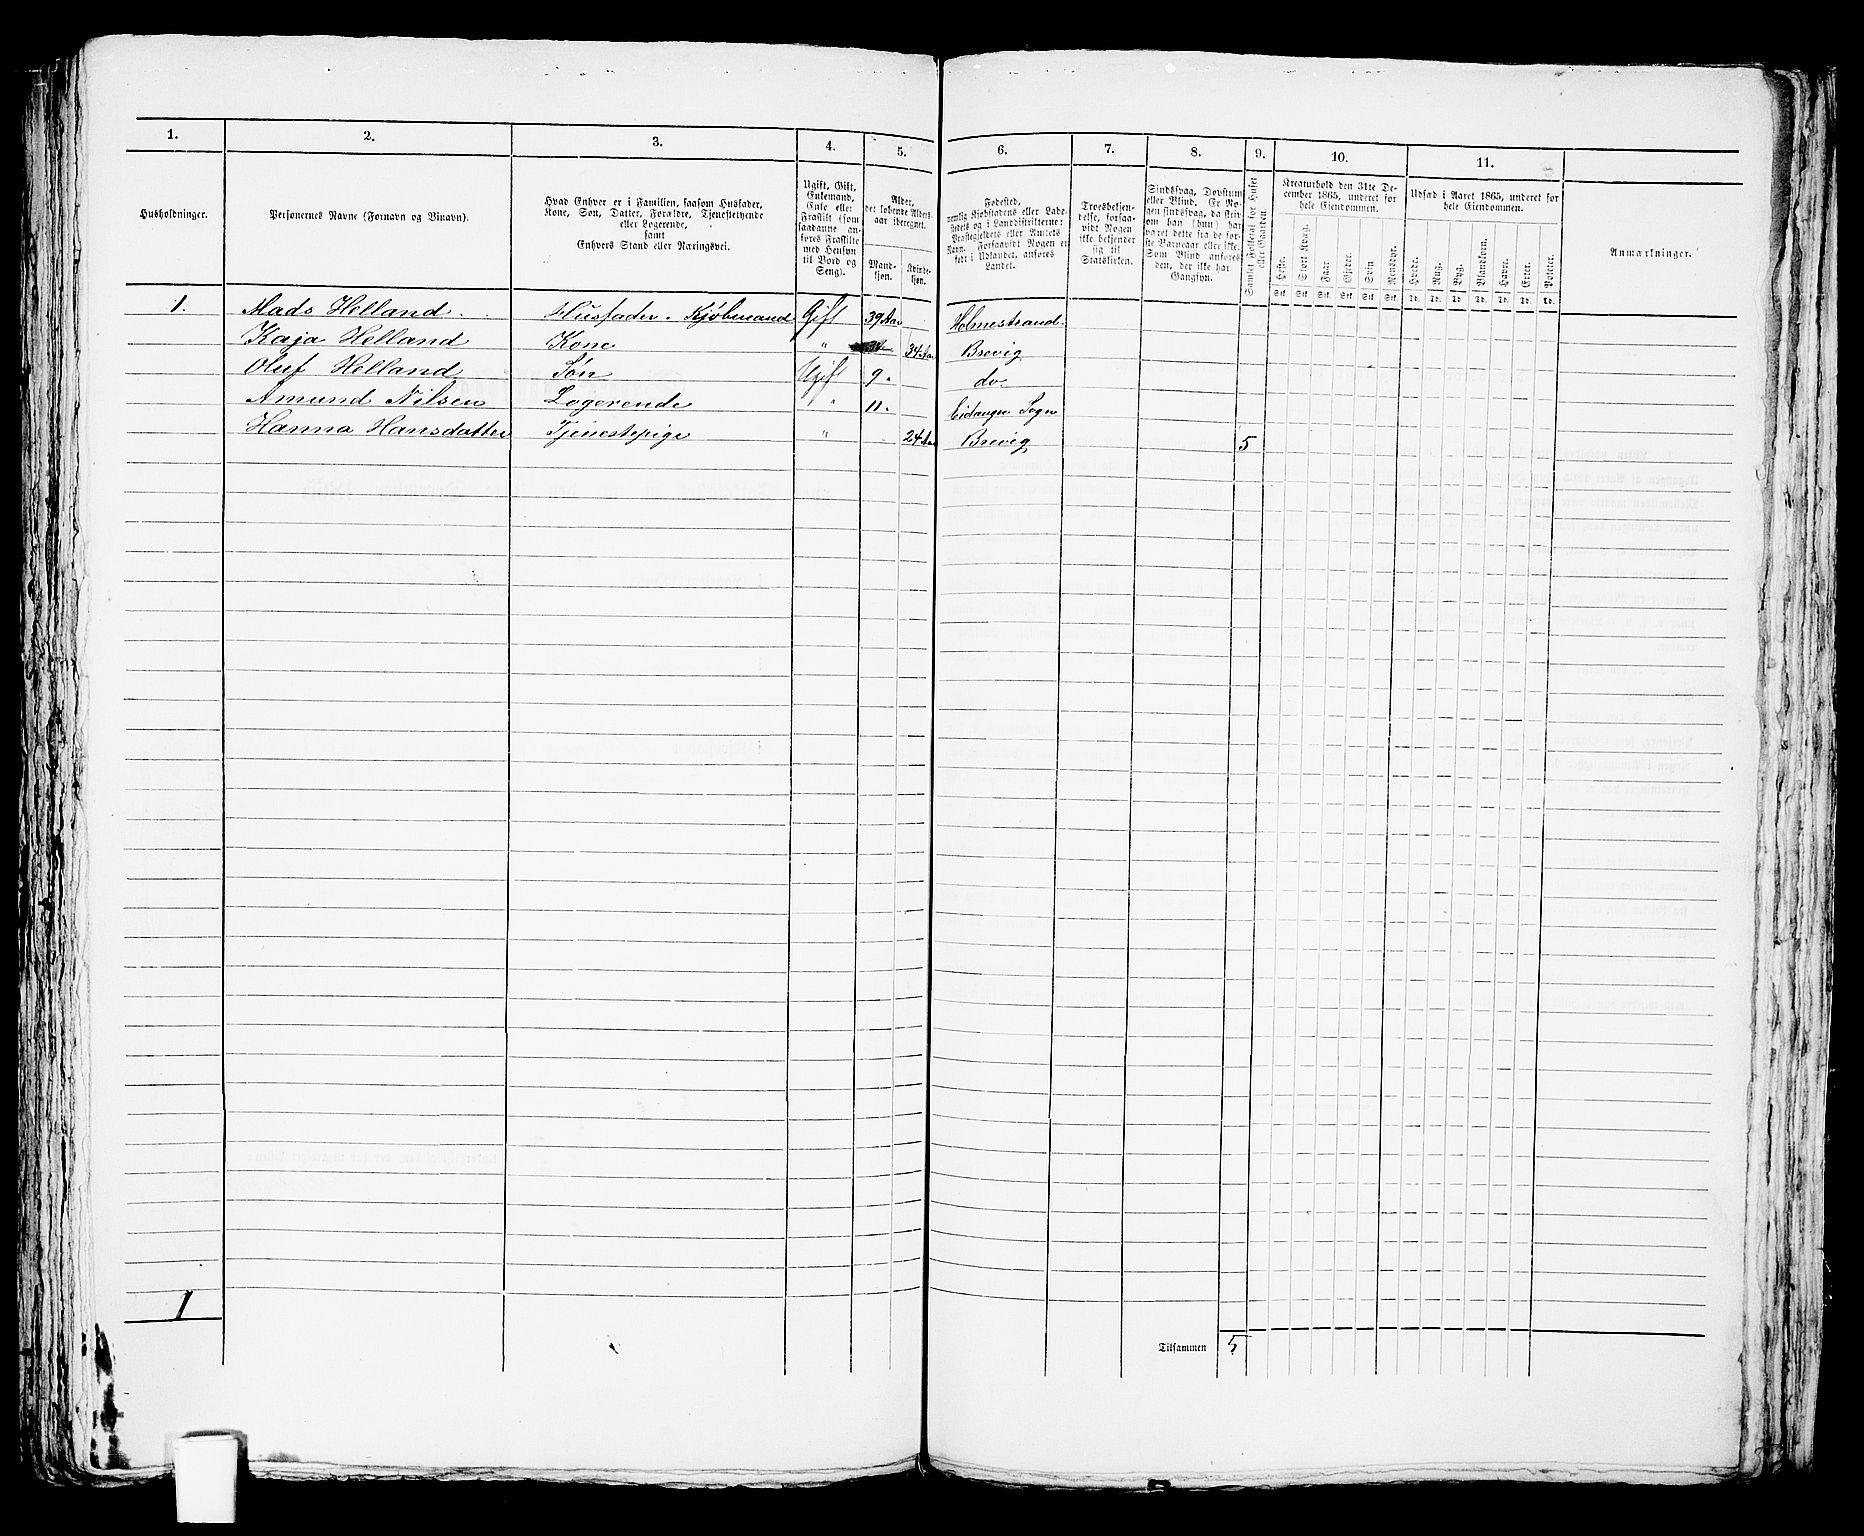 1. 2. 3. 4. 5. 6. 7. 8. 9. 10. 11.
Husholdninger.
Personernes Navne (Fornavn og Binavn).
Hvad Enhver er i Familien, saasom Husfader,
Kone, Søn, Datter, Forældre, Tjenestetyende
eller Logerende,
samt
Enhvers Stand eller Næringsvei.
Ugift, Gift,
Enkemand,
Enke eller
Fraskilt (som
saadanne an-
føres Fraskilte
med Hensyn
til Bord og
Seng).
Alder,
det løbende Alders-
aar iberegnet.
Mand-
kjøn.
Kvinde-
kjøn.
Fødested,
nemlig Kjøbstadens eller Lade-
stedets og i Landdistrikterne:
Præstegjeldets eller Amtets
Navn. Forsaavidt Nogen er
født i Udlandet, anføres
Landet.
Troesbekjen-
delse, forsaa-
vidt Nogen
ikke bekjender
sig til
Statskirken.
Sindssvag, Døvstum
eller Blind. Er No-
gen sindssvag, da skriv-
om han (hun) har
været dette fra de før-
ste Barneaar eller ikke.
Som Blind anføres
den, der ikke har
Gangsyn.
Samlet Folketal for Huset
eller Gaarden.
Kreaturhold den 31te De-
cember 1865, underet for
hele Eiendommen.
Heste. Stort Kvæg. Faar. Gjeder. Svin Rensdyr.
Stk. Stk. Stk. Stk. Stk Stk.
Udsæd i Aaret 1865, underet for
hele Eiendommen.
Hvede. Rug. Byg. Blandkorn. Havre. Erter. Poteter.
Td. Td. Td Td. Td. Td. Td.
Anmærkninger.
1. Mads Helland. Husfader. Kjøbmand Gift 39 Aar Holmestrand.
Kaja Helland Kone " 34 Aar Brevig
Oluf Helland Søn Ugift 9 " do.
Amund Nilsen Logerende " 11 " Eidanger Sogn
Hanna Hansdatter Tjenestepige " 24 Aar Brevig 5
1
Tilsammen 5